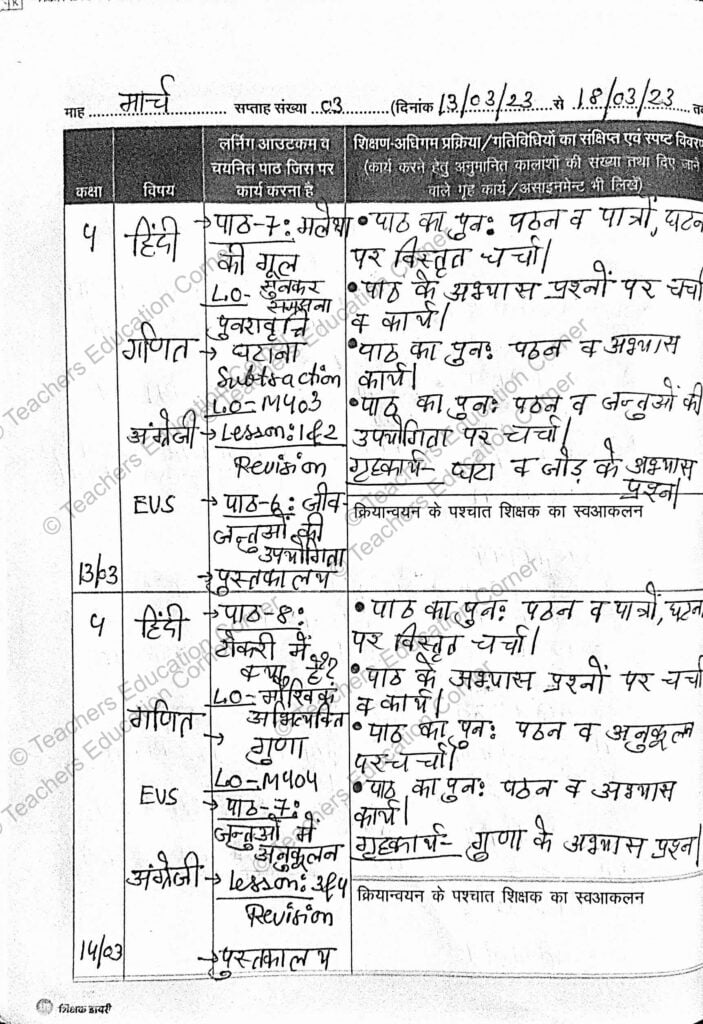 माह मार्च सप्ताह संख्या 03 (दिनांक 13/03/23 से 18/03/23 त
कक्षा
विषय
लर्निंग आउटकम व
चयनित पाठ जिस पर
कार्य करना है
शिक्षण-अधिगम प्रक्रिया/गतिविधियों का संक्षिप्त एवं स्पष्ट विवर
(कार्य करने हेतु अनुमानित कालाशों की संख्या तथा दिए जाने
वाले गृह कार्य/असाइनमेन्ट भी लिखें)
५
हिंदी
गणित
अंग्रेजी
EVS
13/03
→ पाठ-7: मलेथा
की गूल
LO- सुनकर
समझना
पुनरावृत्ति
→ घटाना
Subtraction
LO-M403
→ Lesson:1&2
Revision
→ पाठ-6: जीव-
जन्तुओं की
उपयोगिता
→ पुस्तकालय
• पाठ का पुन: पठन व पात्रों, घटन
पर विस्तृत चर्चा।
• पाठ के अभ्यास प्रश्नों पर चर्चा
व कार्य।
• पाठ का पुन: पठन व अभ्यास
कार्य।
• पाठ का पुन: पठन व जन्तुओं की
उपयोगिता पर चर्चा।
गृहकार्य- घटा व जोड़ के अभ्यास
प्रश्न।
क्रियान्वयन के पश्चात शिक्षक का स्वआकलन
५
हिंदी
गणित
EVS
अंग्रेजी
14/03
→ पाठ-8:
टोकरी में
क्या है?
LO- मौखिक
अभिव्यक्ति
→ गुणा
LO-M404
→ पाठ-7:
जन्तुओं में
अनुकूलन
→ Lesson: 3&4
Revision
→ पुस्तकालय
• पाठ का पुन: पठन व पात्रों, घटन
पर विस्तृत चर्चा।
• पाठ के अभ्यास प्रश्नों पर चर्चा
व कार्य।
• पाठ का पुन: पठन व अनुकूलन
पर चर्चा।
• पाठ का पुन: पठन व अभ्यास
कार्य।
गृहकार्य- गुणा के अभ्यास प्रश्न।
क्रियान्वयन के पश्चात शिक्षक का स्वआकलन
शिक्षक डायरी
© Teachers Education Corner
© Teachers Education Corner
© Teachers Education Corner
© Teachers Education Corner
© Teachers Education Corner
© Teachers Education Corner